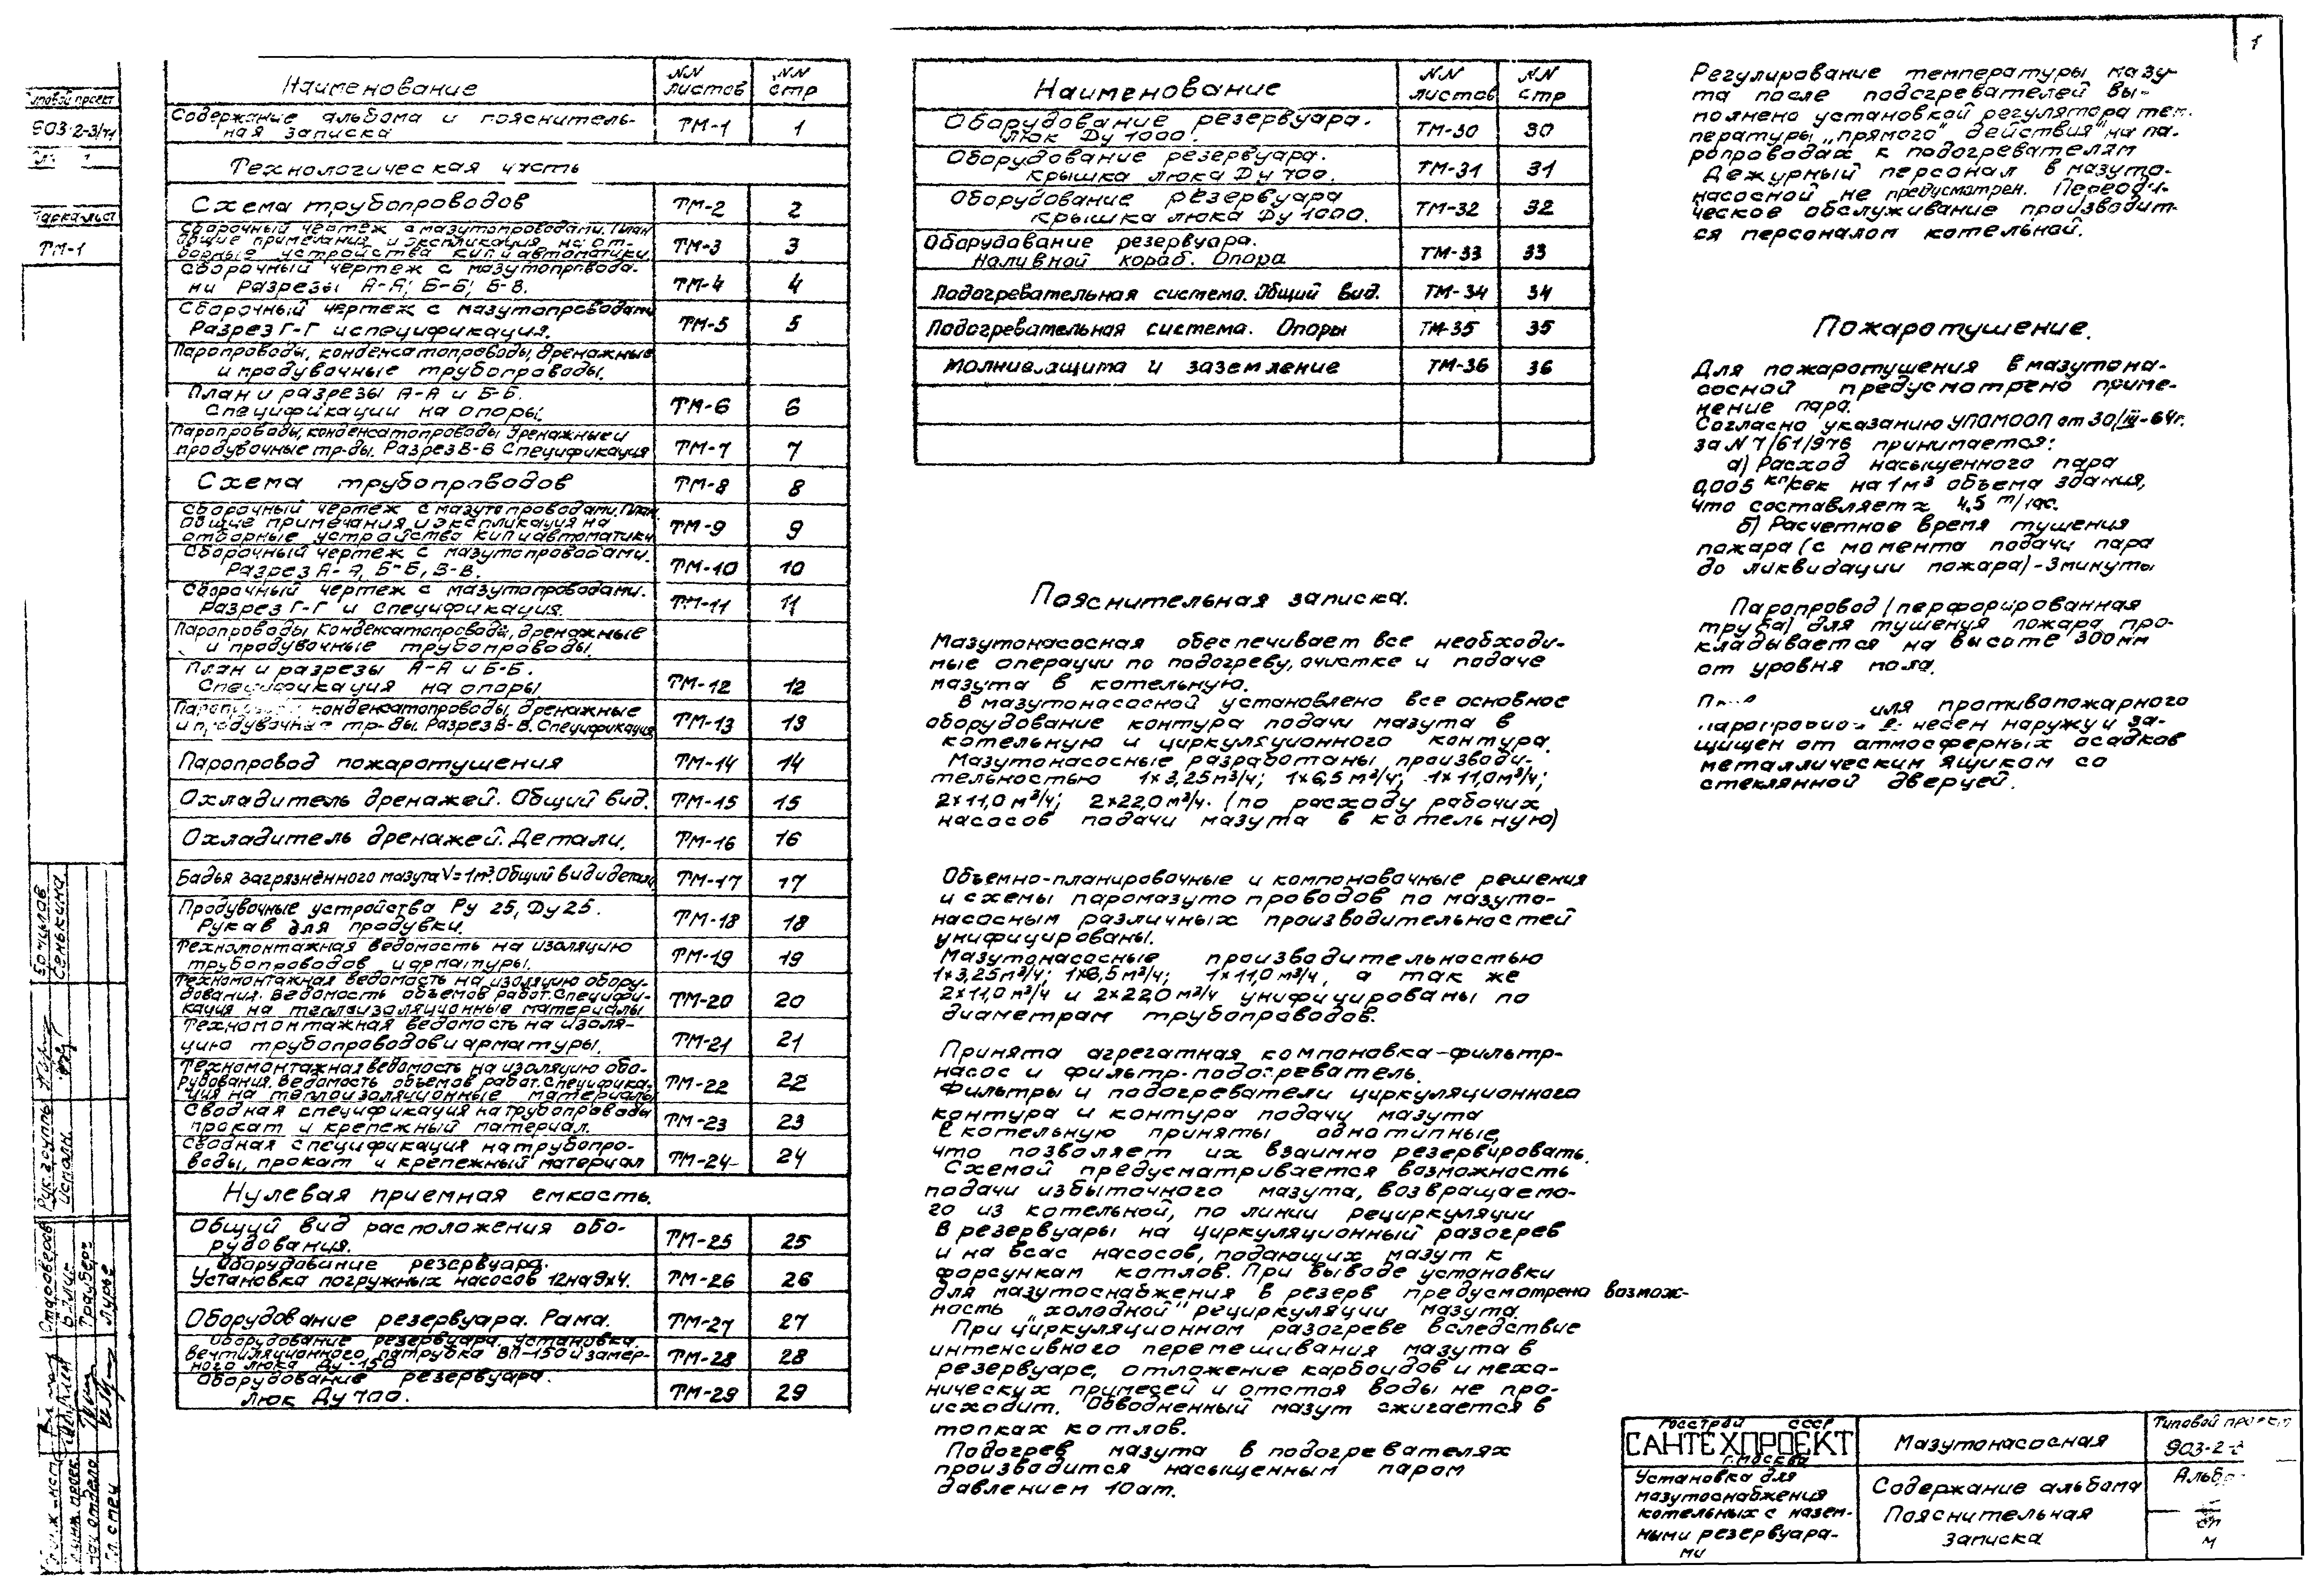 1
Типовой проект
903-2-3/71
1
ТМ-1
Наименование | NN листов | NN стр
Содержание альбома и пояснитель-
ная записка | ТМ-1 | 1
Технологическая часть
Схема трубопроводов | ТМ-2 | 2
Сборочный чертеж с мазутопроводами. План
Общие примечания и экспликация на от-
борные устройства КИП и автоматики | ТМ-3 | 3
Сборочный чертеж с мазутопровода-
ми Разрезы А-А; Б-Б; В-В. | ТМ-4 | 4
Сборочный чертеж с мазутопроводами
Разрез Г-Г и спецификация. | ТМ-5 | 5
Паропроводы, конденсатопроводы, дренажные
и продувочные трубопроводы.
План и разрезы А-А и Б-Б.
Спецификации на опоры. | ТМ-6 | 6
Паропроводы, конденсатопроводы дренажные и
продувочные тр-ды. Разрез В-В Спецификация | ТМ-7 | 7
Схема трубопроводов | ТМ-8 | 8
Сборочный чертеж с мазутопроводами. План
Общие примечания и экспликация на
отборные устройства КИП и автоматики | ТМ-9 | 9
Сборочный чертеж с мазутопроводами.
Разрез А-А, Б-Б, В-В. | ТМ-10 | 10
Сборочный чертеж с мазутопроводами.
Разрез Г-Г и спецификация. | ТМ-11 | 11
Паропроводы конденсатопроводы, дренажные
и продувочные трубопроводы.
План и разрезы А-А и Б-Б.
Спецификация на опоры | ТМ-12 | 12
Паропроводы конденсатопроводы, дренажные
и продувочные тр-ды. Разрез В-В. Спецификация | ТМ-13 | 13
Паропровод пожаротушения | ТМ-14 | 14
Охладитель дренажей. Общий вид. | ТМ-15 | 15
Охладитель дренажей. Детали. | ТМ-16 | 16
Бадья загрязненного мазута V=1м³. Общий вид и детали | ТМ-17 | 17
Продувочные устройства Ру 25, Ду 25.
Рукав для продувки. | ТМ-18 | 18
Техномонтажная ведомость на изоляцию
трубопроводов и арматуры. | ТМ-19 | 19
Техномонтажная ведомость на изоляцию обору-
дования. Ведомость объемов работ. Специфи-
кация на теплоизоляционные материалы | ТМ-20 | 20
Техномонтажная ведомость на изоля-
цию трубопроводов и арматуры. | ТМ-21 | 21
Техномонтажная ведомость на изоляцию обо-
рудования. Ведомость объемов работ. Специфика-
ция на теплоизоляционные материалы | ТМ-22 | 22
Сводная спецификация на трубопроводы
прокат и крепежный материал. | ТМ-23 | 23
Сводная спецификация на трубопро-
воды, прокат и крепежный материал | ТМ-24 | 24
Нулевая приемная емкость.
Общий вид расположения обо-
рудования. | ТМ-25 | 25
Оборудование резервуара.
Установка погружных насосов 12на9х4. | ТМ-26 | 26
Оборудование резервуара. Рама. | ТМ-27 | 27
Оборудование резервуара, установка
вентиляционного патрубка ВП-150 и замер-
ного люка Ду-150 | ТМ-28 | 28
Оборудование резервуара.
люк Ду 700. | ТМ-29 | 29
Наименование | NN листов | NN стр
Оборудование резервуара.
люк Ду 1000. | ТМ-30 | 30
Оборудование резервуара.
крышка люка Ду 700. | ТМ-31 | 31
Оборудование резервуара
крышка люка Ду 1000. | ТМ-32 | 32
Оборудование резервуара.
Наливной короб. Опора | ТМ-33 | 33
Подогревательная система. Общий вид. | ТМ-34 | 34
Подогревательная система. Опоры | ТМ-35 | 35
Молниезащита и заземление | ТМ-36 | 36
Пояснительная записка.
Мазутонасосная обеспечивает все необходи-
мые операции по подогреву, очистке и подаче
мазута в котельную.
В мазутонасосной установлено все основное
оборудование контура подачи мазута в
котельную и циркуляционного контура.
Мазутонасосные разработаны производи-
тельностью 1×3,25 м³/ч; 1×6,5 м³/ч; 1×11,0 м³/ч;
2×11,0 м³/ч; 2×22,0 м³/ч. (по расходу рабочих
насосов подачи мазута в котельную)
Объемно-планировочные и компоновочные решения
и схемы паромазутопроводов по мазуто-
насосным различных производительностей
унифицированы.
Мазутонасосные производительностью
1×3,25 м³/ч; 1×6,5 м³/ч; 1×11,0 м³/ч, а так же
2×11,0 м³/ч и 2×22,0 м³/ч унифицированы по
диаметрам трубопроводов.
Принята агрегатная компоновка-фильтр-
насос и фильтр-подогреватель.
Фильтры и подогреватели циркуляционного
контура и контура подачи мазута
в котельную приняты однотипные,
что позволяет их взаимно резервировать.
Схемой предусматривается возможность
подачи избыточного мазута, возвращаемо-
го из котельной, по линии рециркуляции
в резервуары на циркуляционный разогрев
и на всас насосов, подающих мазут к
форсункам котлов. При выводе установки
для мазутоснабжения в резерв предусмотрена возмож-
ность „холодной" рециркуляции мазута.
При циркуляционном разогреве вследствие
интенсивного перемешивания мазута в
резервуаре, отложение карбоидов и меха-
нических примесей и отстоя воды не про-
исходит. Обводненный мазут сжигается в
топках котлов.
Подогрев мазута в подогревателях
производится насыщенным паром
давлением 10 ат.
Регулирование температуры мазу-
та после подогревателей вы-
полнено установкой регулятора тем-
пературы „прямого" действия на па-
ропроводах к подогревателям
Дежурный персонал в мазуто-
насосной не предусмотрен. Периоди-
ческое обслуживание производит-
ся персоналом котельной.
Пожаротушение.
Для пожаротушения в мазутона-
сосной предусмотрено приме-
нение пара.
Согласно указанию УПОМООП от 30/III-64г.
за N 7/61/976 принимается:
а) Расход насыщенного пара
0,005 кг/сек на 1м³ объема здания,
что составляет ≈ 4,5 т/час.
б) Расчетное время тушения
пожара (с момента подачи пара
до ликвидации пожара) - 3 минуты
Паропровод (перфорированная
труба) для тушения пожара про-
кладывается на высоте 300 мм
от уровня пола.
для противопожарного
паропровода вынесен наружу и за-
щищен от атмосферных осадков
металлическим ящиком со
стеклянной дверцей.
Госстрой СССР
САНТЕХПРОЕКТ
г. Москва
Установка для
мазутоснабжения
котельных с назем-
ными резервуара-
ми
Мазутонасосная
Содержание альбома
Пояснительная
записка
Типовой проект
903-2-
Альбо
Рук. группы
Исполн.
Сенькина
Староверов
Трауберг
Лурье
Нач. отдела
Гл. спец